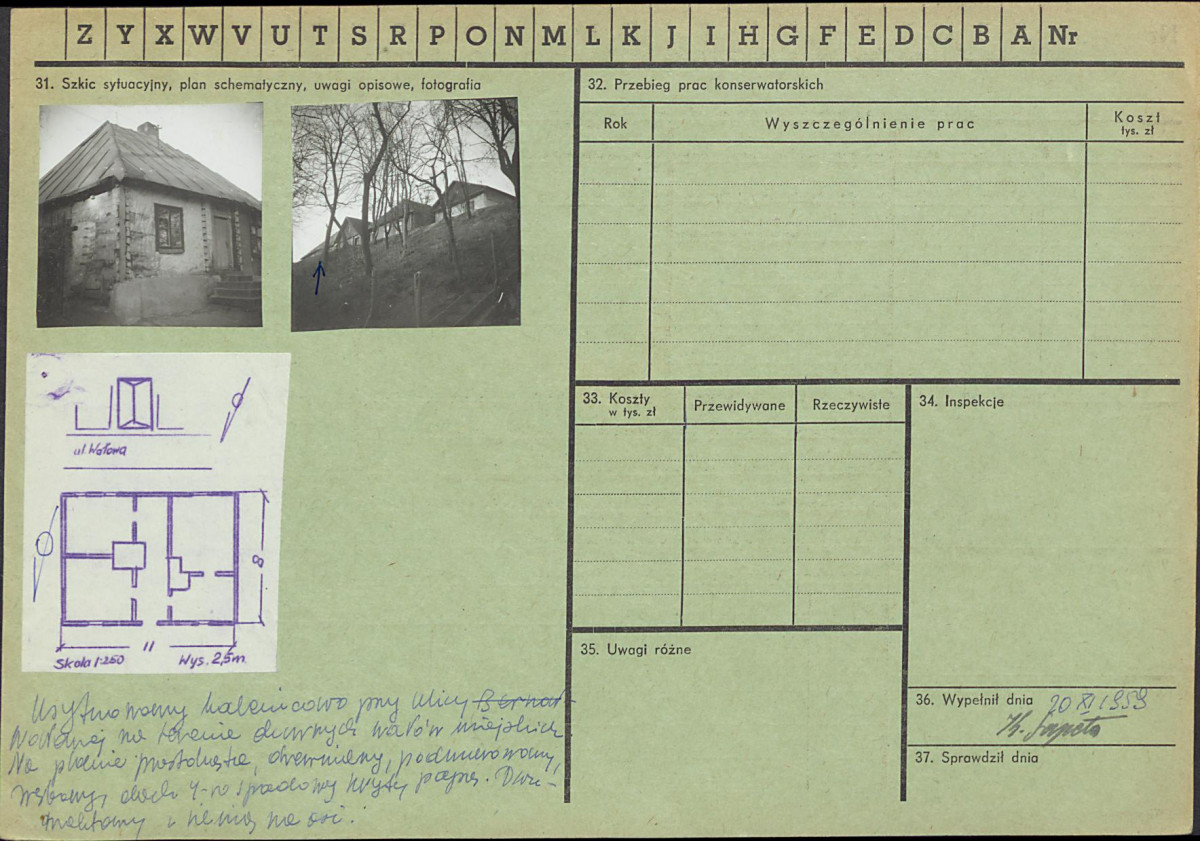 Z Y X W V U T S R P O N M L K J I H G F E D C B A Nr
31. Szkic sytuacyjny, plan schematyczny, uwagi opisowe, fotografia
ul. Wałowa
8
11
Skala 1:250 Wys. 2,5m
Usytuowany kalenicowo przy ulicy Bernar-
Wałowej na terenie dawnych wałów miejskich.
Na planie prostokąta, drewniany, podmurowany,
dach 4-ro spadowy kryty papą. Dwu-
traktowy z sienią na osi.
32. Przebieg prac konserwatorskich
Rok Wyszczególnienie prac Koszt
tys. zł
33. Koszty
w tys. zł
Przewidywane Rzeczywiste
34. Inspekcje
35. Uwagi różne
36. Wypełnił dnia 20 XI 1959
37. Sprawdził dnia